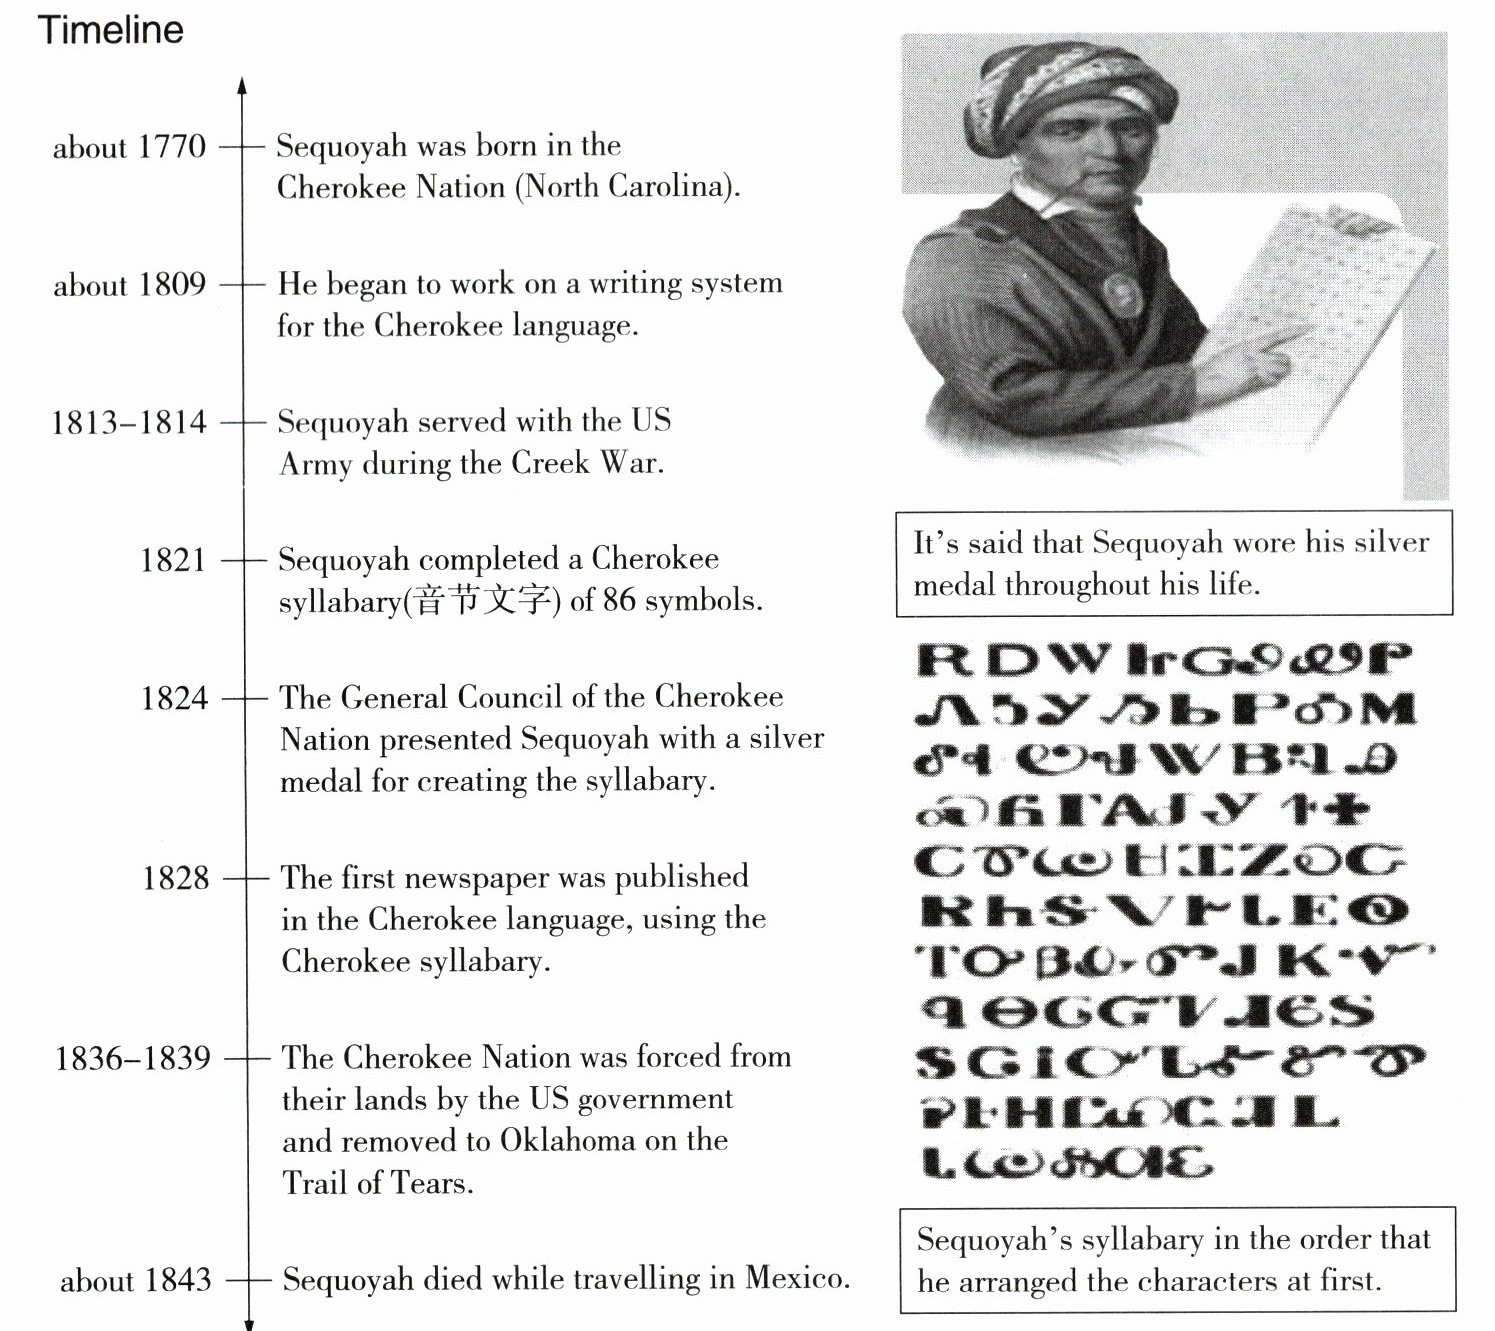 Timeline
about 1770
Sequoyah was born in the
Cherokee Nation (North Carolina).
about 1809
He began to work on a writing system
for the Cherokee language.
1813–1814
Sequoyah served with the US
Army during the Creek War.
1821
Sequoyah completed a Cherokee
syllabary(音节文字) of 86 symbols.
1824
The General Council of the Cherokee
Nation presented Sequoyah with a silver
medal for creating the syllabary.
1828
The first newspaper was published
in the Cherokee language, using the
Cherokee syllabary.
1836–1839
The Cherokee Nation was forced from
their lands by the US government
and removed to Oklahoma on the
Trail of Tears.
about 1843
Sequoyah died while travelling in Mexico.
It's said that Sequoyah wore his silver
medal throughout his life.
Sequoyah's syllabary in the order that
he arranged the characters at first.